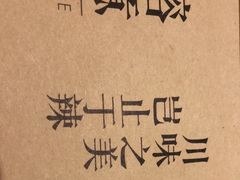 川味之美
岂止于辣